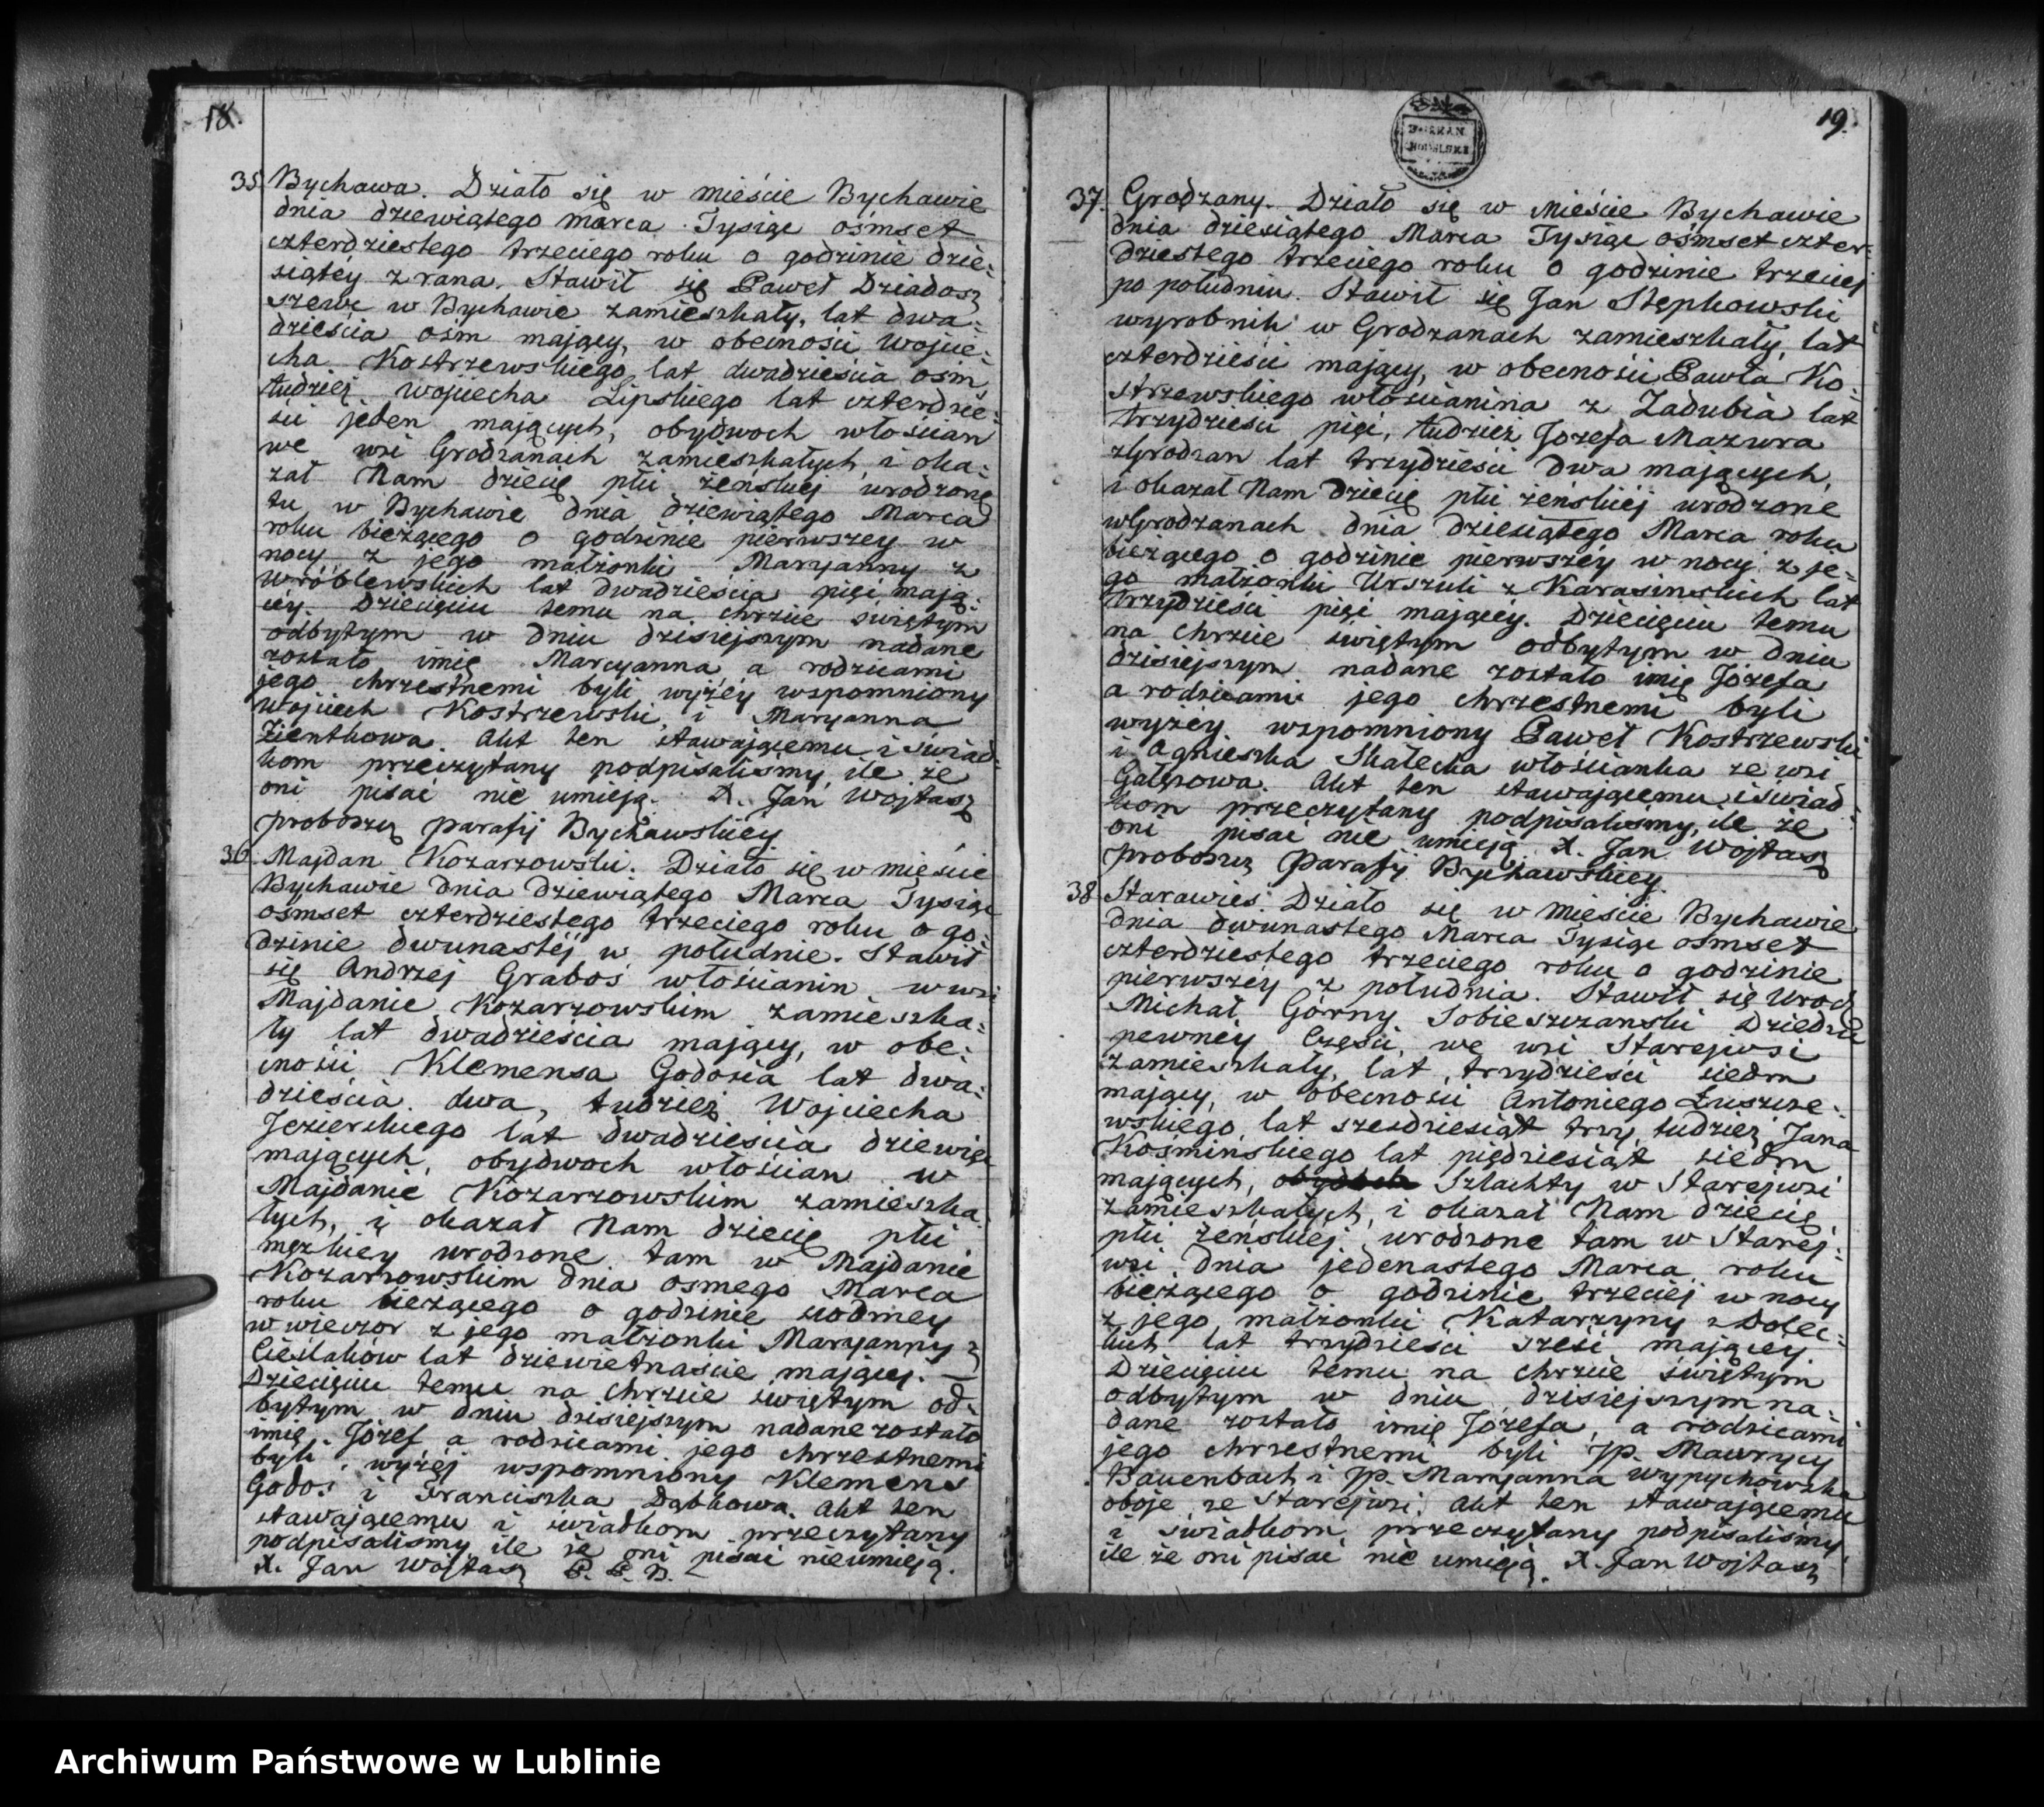 18.
35. Bychawa. Działo się w mieście Bychawie
dnia dziewiątego marca Tysiąc ośmset
czterdziestego trzeciego roku o godzinie dzie-
siątéy z rana. Stawił się Paweł Dziadosz
szewc w Bychawie zamieszkały, lat dwa-
dzieścia ośm maiący, w obecności Woycie-
cha Kostrzewskiego lat dwadzieścia ośm,
tudzież Wojciecha Lipskiego lat czterdzie-
ści jeden mających, obydwoch włościan
we wsi Grodzanach zamieszkałych, i oka-
zał Nam dziecię płci żeńskiej urodzone
tu w Bychawie dnia dziewiątego Marca
roku bieżącego o godzinie pierwszey w
nocy z jego małżonki Maryanny z
Wróblewskich lat dwadzieścia pięć mają-
céy. Dziecięciu temu na chrzcie świętym
odbytym w dniu dzisiejszym nadane
zostało imię Marcyanna, a rodzicami
jego chrzestnemi byli wyżéy wspomniony
Wojciech Kostrzewski, i Maryanna
Zientkowa. Akt ten stawającemu i świad-
kom przeczytany podpisaliśmy, ile że
oni pisać nie umieją. X. Jan Wojtasz
proboszcz parafij Bychawskiey
36. Majdan Kozarzowski. Działo się w mieście
Bychawie dnia dziewiątego Marca Tysiąc
ośmset czterdziestego trzeciego roku o go-
dzinie dwunastéj w południe. Stawił
się Andrzej Graboś włościanin w wsi
Majdanie Kozarzowskim zamieszka-
ły lat dwadzieścia mający, w obe-
cności Klemensa Godosia lat dwa-
dzieścia dwa, tudzież Wojciecha
Jezierskiego lat dwadzieścia dziewięć
mających, obydwoch włościan w
Majdanie Kozarzowskim zamieszka-
łych, i okazał Nam dziecię płci
męzkiey urodzone tam w Majdanie
Kozarzowskim dnia osmego Marca
roku bieżącego o godzinie siodmey
w wieczor z jego małżonki Maryanny z
Cieślaków lat dziewiętnaście mającey. —
Dziecięciu temu na chrzcie świętym od-
bytym w dniu dzisiejszym nadane zostało
imię Józef, a rodzicami jego chrzestnemi
byli wyżéj wspomniony Klemens
Godoś i Franciszka Dąbkowa. Akt ten
stawającemu i świadkom przeczytany
podpisaliśmy ile że oni pisać nieumieją.
X. Jan Wojtasz P. P. B.
19.
37. Grodzany. Działo się w Mieście Bychawie
dnia dziesiątego Marca Tysiąc ośmset czter-
dziestego trzeciego roku o godzinie trzeciej
po południu. Stawił się Jan Stępkowski
wyrobnik w Grodzanach zamieszkały, lat
czterdzieści mający, w obecności Pawła Ko-
strzewskiego włościanina z Zadubia lat
trzydzieści pięć, tudzież Jozefa Mazura
zGrodzan lat trzydzieści dwa mających,
i okazał Nam dziecię płci żeńskiéj urodzone
wGrodzanach dnia dziesiątego Marca roku
bieżącego o godzinie pierwszéy w nocy z je-
go małżonki Urszuli z Karasinskich lat
trzydzieści pięć mającéy. Dziecięciu temu
na chrzcie świętym odbytym w dniu
dzisiejszym nadane zostało imię Józefa
a rodzicami jego chrzestnemi byli
wyżey wspomniony Paweł Kostrzewski
i Agnieszka Skałecka włościanka ze wsi
Gałęzowa. Akt ten stawającemu i świad-
kom przeczytany podpisaliśmy, ile że
oni pisać nie umieją. X. Jan Wojtasz
proboszcz Parafij Bychawskiey.
38 Starawieś. Działo się w Mieście Bychawie
dnia dwunastego Marca Tysiąc ośmset
czterdziestego trzeciego roku o godzinie
pierwszéy z południa. Stawił się Urodz
Michał Górny Sobieszczanski Dziedzic
pewnéy Części, we wsi Starejwsi
zamieszkały, lat trzydzieści siedm
mający, w obecności Antoniego Łuszcze-
wskiego lat sześdziesiąt trzy, tudzież Jana
Kośminskiego lat pięćdziesiąt siedm
mających, Szlachty w Starejwsi
zamieszkałych, i okazał Nam dziecię
płci żeńskiej urodzone tam w Starej-
wsi dnia jedenastego Marca roku
bieżącego o godzinie trzeciéj w nocy
z jego małżonki Katarzyny z Dolec-
kich lat trzydzieści sześć mającey.
Dziecięciu temu na chrzcie świętym
odbytym w dniu dzisiejszym na-
dane zostało imię Józefa, a rodzicami
jego chrzestnemi byli Jp. Maurycy
Bauenbach i Jp. Maryanna Wypychowska
oboje ze Starejwsi. Akt ten stawającemu
i świadkom przeczytany podpisaliśmy,
ile że oni pisać nie umieją. X. Jan Wojtasz
Archiwum Państwowe w Lublinie